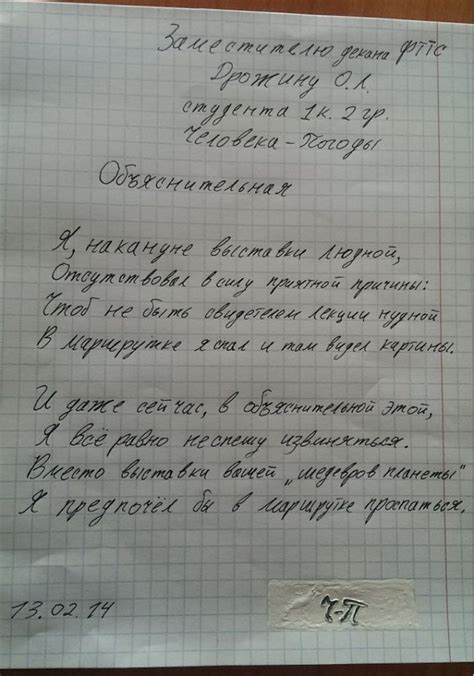 Заместителю декана ФТТС
Дрожину О.Л.
студента 1к. 2гр.
Человека-Погоды
Объяснительная
Я, накануне выставки людной,
Отсутствовал в силу приятной причины:
Чтоб не быть свидетелем лекции нудной
В маршрутке я спал и там видел картины.
И даже сейчас, в объяснительной этой,
Я всё равно неспешу извиняться.
Вместо выставки вашей „шедевров планеты"
Я предпочёл бы в маршрутке проспаться.
13.02.14
Ч-П